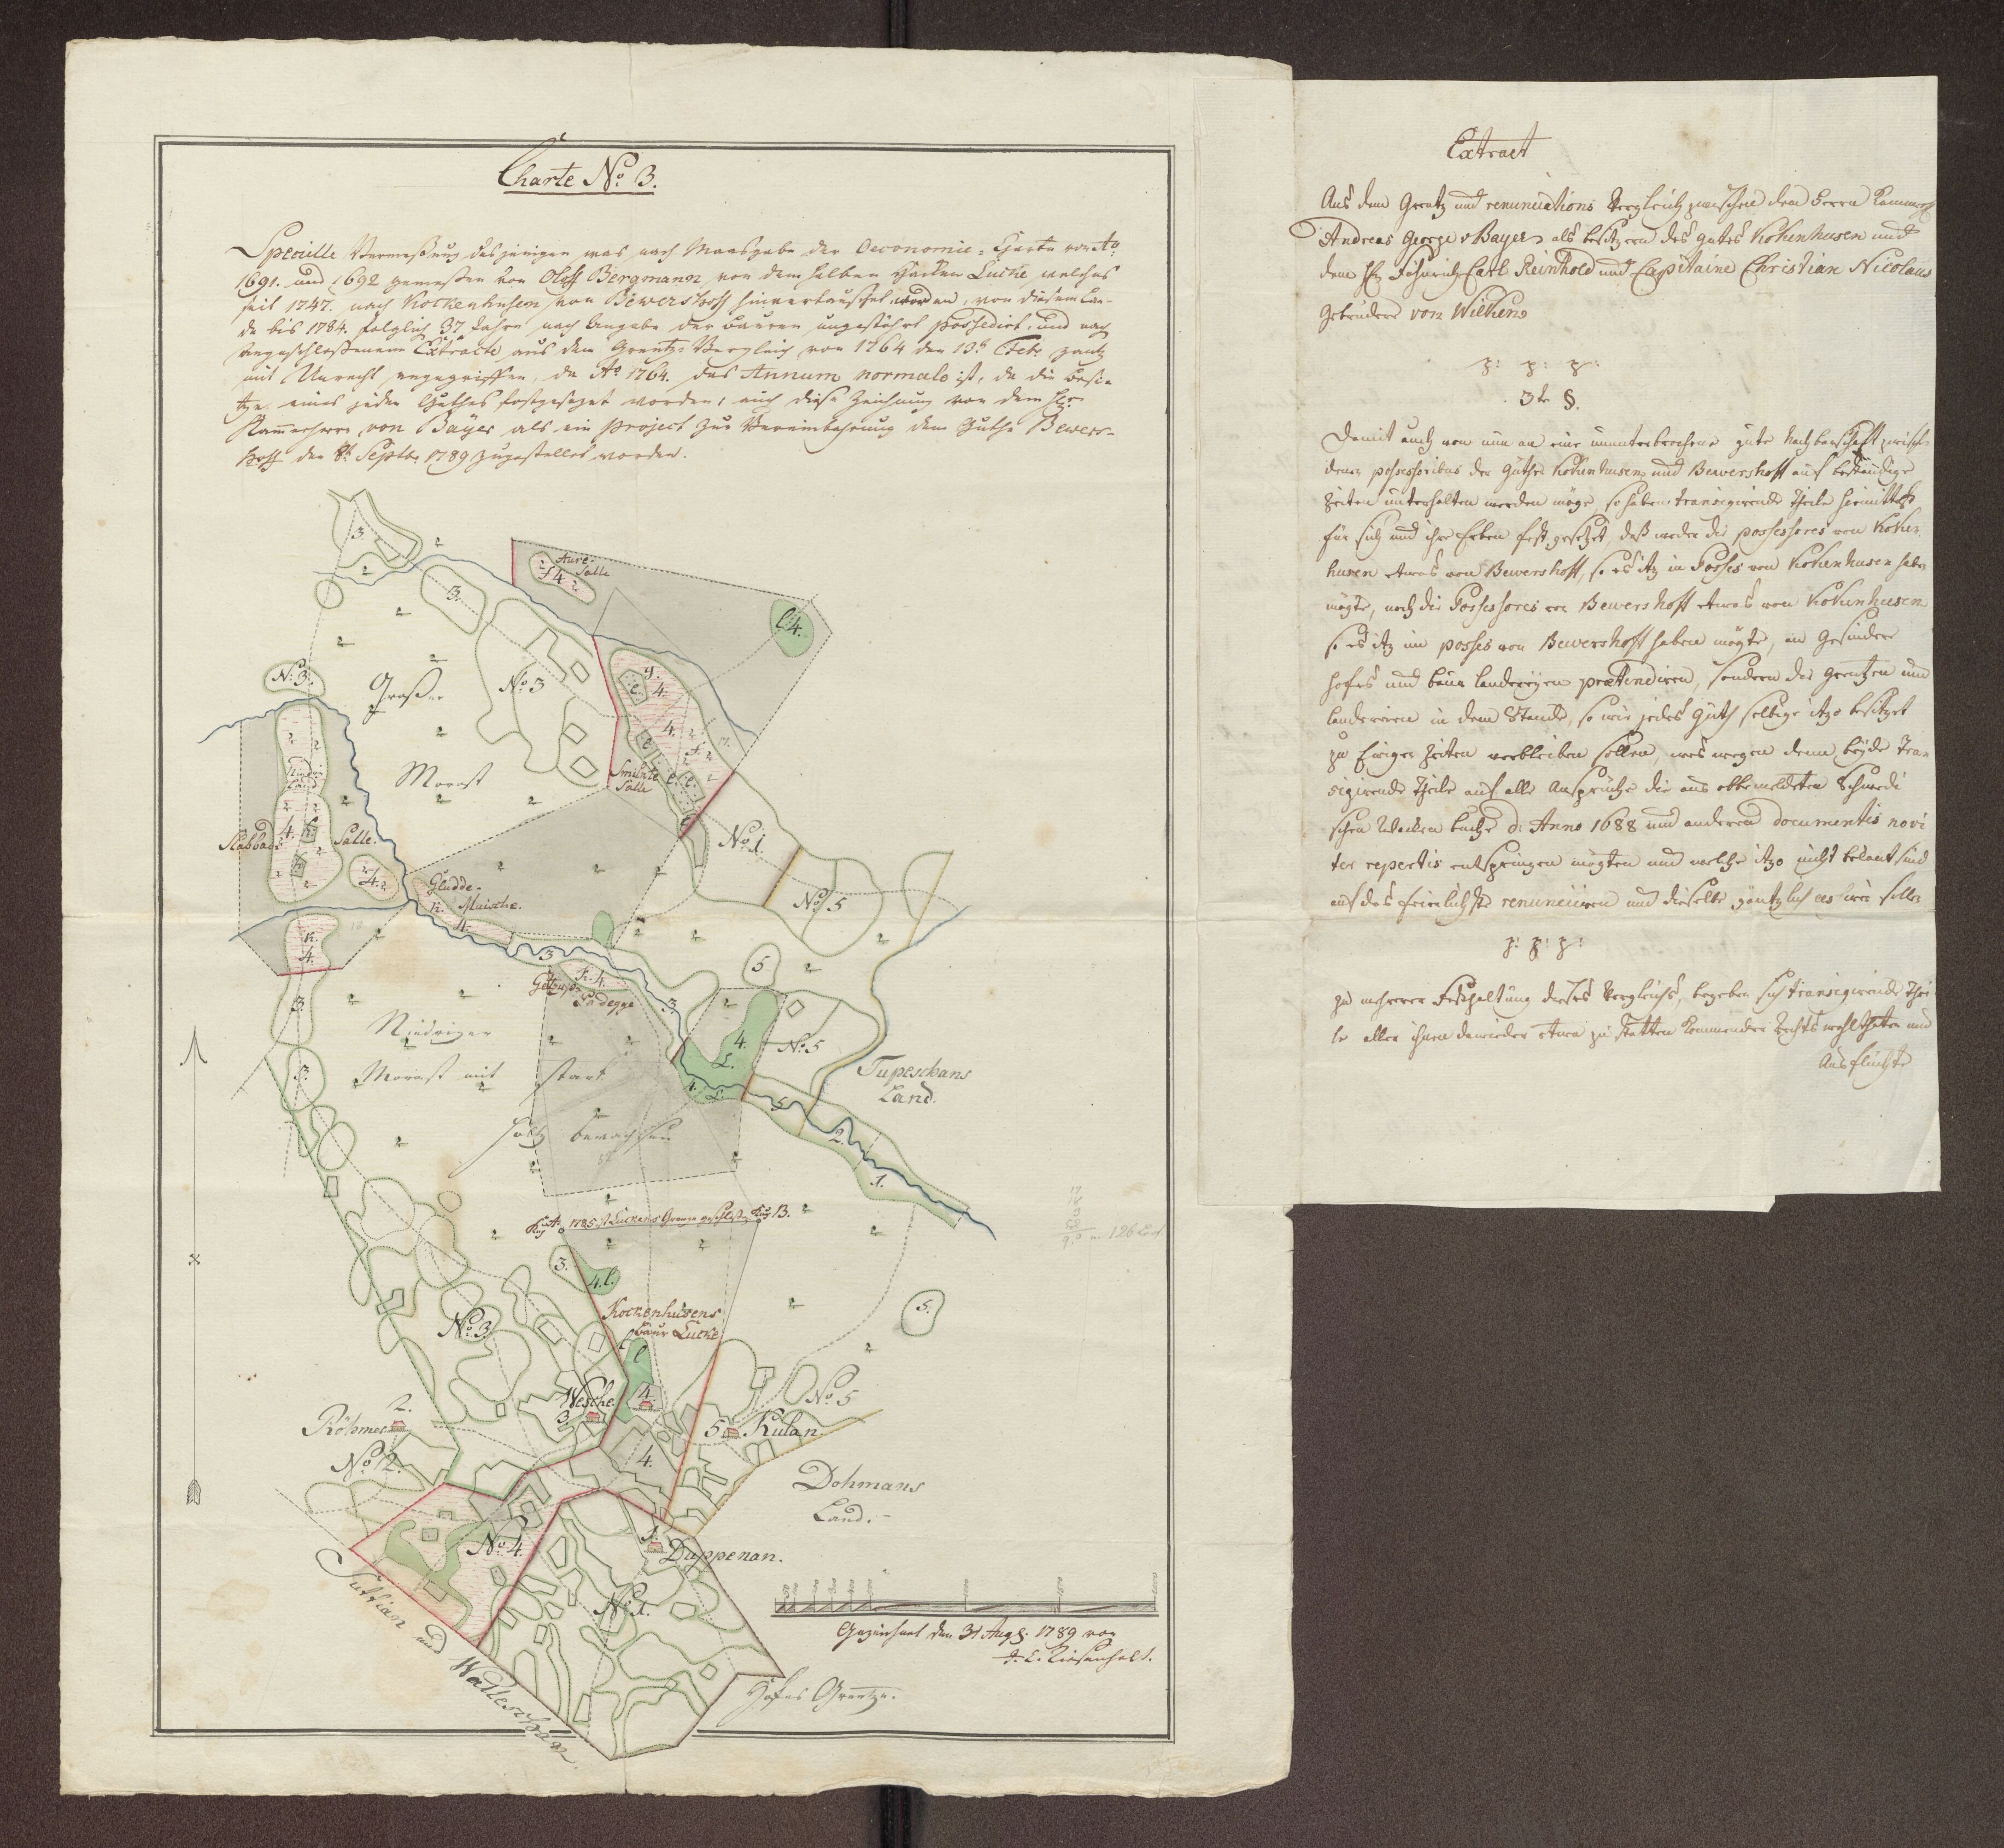 Charte No. 3.
Specielle Vermeßung desjenigen was nach Maasgabe der Oeconomie-Charte von Ao.
1691. und 1692 gemeßen von Oloff Bergmann von dem halben Haaken Lucke, welches
seit 1747. nach Kockenhusen von Bewershoff hinvertauschet worden, von diesem Lan-
de bis 1784. folglich 37 Jahre nach Angabe der Bauren ungestöhrt possedirt, und nach
angeschloßenem Extracte aus dem Grentz-Vergleich von 1764 den 13t Febr gantz
mit Unrecht angegriffen, da Ao 1764. das Annum normale ist, da die Besi-
tze eines jeden Guthes festgesezet worden, auch diese Zeichnung von dem Hr.
Kammerherr von Bayer als ein project zur Vereinbahrung dem Guthe Bewers-
hoff den 8t Septbr. 1789 zugestellet worden.
3.
Aure
Salle
4
3.
L 4.
No. 3.
Großer
No. 3
4.
Morast
Smilxte
Salle
Land
4.
Salle.
No. 1.
4.
Gludde-
Muische.
4.
No. 5
4.
3
4.
Padegge
3.
5.
3.
Niedriger
4.
No. 5
L.
Morast mit starck
Holtz bewachsen
Tupeschans
Land.
3.
4. L.
5.
2.
1.
1785 Luckens Grenze B.
3.
4. l.
5.
No. 3
Kockenhusens
Baur Lucke
l
Wesche
3
4.
2.
Röhmer
No. 2.
4.
No. 5
5 Kulan.
Dohmans
Land.
No. 4.
1.
Duppenan.
No. 1.
Suttian und Wadleschkaln
Hofes Grentze.
Gezeichnet den 31 Aug. 1789 von
Extract
Aus dem Grentz und renunciations Vergleich zwischen dem Herrn Kammerh
Andreas George v Bayer als besitzern des Gutes Kokenhusen und
dem H. Fähnrich Carl Reinhold und Capitaine Christian Nicolaus
Gebrüdere von Wilken
p: p: p:
3te §.
Damit auch von nun an eine ununterbrochene gute Nachbarschaft zwisch
denen possessoribus der Güther Kokenhusen und Bewershoff auf beständige
Zeiten unterhalten werden möge, so haben transigirende Theile hiemittelst
für sich und ihre Erben fest gesetzet, daß weder die possessores von Koken
husen etwas von Bewershoff, so es itz in Posses von Kokenhusen haben
mögte, noch die Possessores von Bewershoff etwas von Kokenhusen
so es itz im posses von Bewershoff haben mögte, an Gesindern
Hofes und Baur Landereyen prætendiren, sondern die Grentzen und
Landereien in dem Stande, so wie jedes Guth selbige itzo besitzet
zu Ewigen Zeiten verbleiben sollen, wes wegen denn beyde Tran
sigirende Theile auf alle Ansprüche die aus obbemeldeten Schwedi
schen Wacken buche d: Anno 1688 und anderen documentis novi
ter repertis entspringen mögten und welche itzo nicht bekant sind
auf das feierlichste renunciiren und dieselbe gäntzlich
p: p: p:
zu mehrerer Festhaltung dieses Vergleichs, begeben sich transigirende Thei
le aller ihnen dawieder etwa zu statten kommenden Rechts wohlthaten und
Ausflüchte